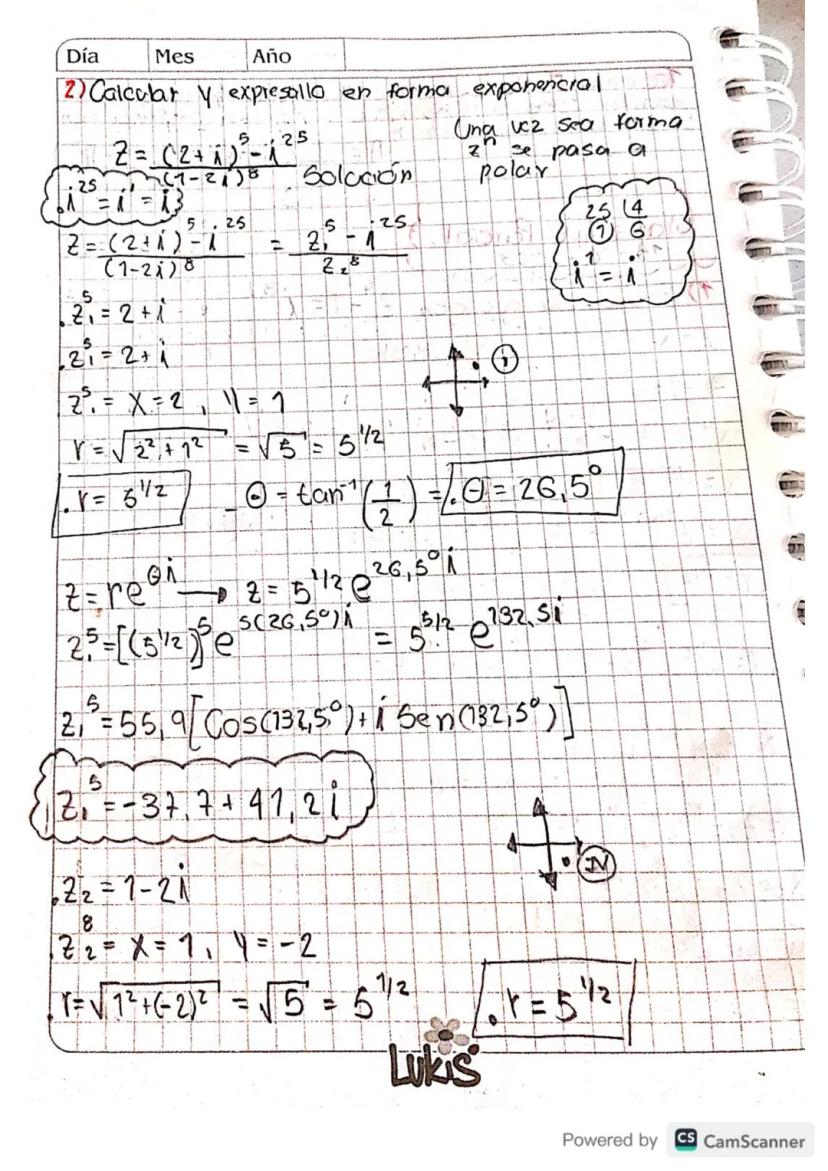 Día Mes Año
2) Calcular y expresallo en forma exponencial
Una vez sea forma
zⁿ se pasa a
polar
Z = (2+i)⁵ - i²⁵ / (1-2i)⁸ Solución
.i²⁵ = i¹ = i
25 4
1 6
i¹ = i
Z = (2+i)⁵ - i²⁵ / (1-2i)⁸ = Z₁⁵ - i²⁵ / Z₂⁸
.Z₁⁵ = 2+i
.Z₁⁵ = 2+i
Z⁵₁ = X=2, Y=1
r = √2²+1² = √5 = 5^1/2
.r = 5^1/2 _ Θ = tan⁻¹(1/2) = .Θ = 26,5°
Z = re^θi → Z = 5^1/2 e^26,5°i
Z₁⁵ = [(5^1/2)]⁵ e^5(26,5°)i = 5^5/2 e^132,5i
Z₁⁵ = 55,9[Cos(132,5°)+i Sen(132,5°)]
Z₁⁵ = -37,7 + 41,2i
IV
.Z₂ = 1-2i
.Z₂⁸ = X=1, Y=-2
.r = √1²+(-2)² = √5 = 5^1/2 .r = 5^1/2
LUKIS
Powered by CS CamScanner